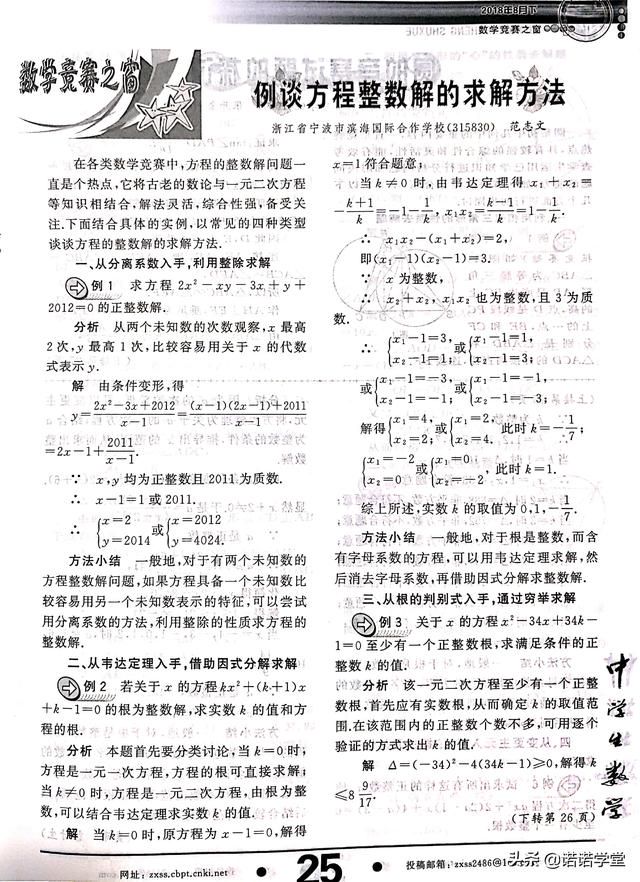 2018年8月下
数学竞赛之窗
数学竞赛之窗
例谈方程整数解的求解方法
浙江省宁波市滨海国际合作学校(315830) 范志文
在各类数学竞赛中,方程的整数解问题一
直是个热点,它将古老的数论与一元二次方程
等知识相结合,解法灵活,综合性强,备受关
注.下面结合具体的实例,以常见的四种类型
谈谈方程的整数解的求解方法.
一、从分离系数入手,利用整除求解
例1 求方程 2x²-xy-3x+y+
2012=0的正整数解.
分析 从两个未知数的次数观察,x最高
2次,y最高1次,比较容易用关于x的代数
式表示y.
解 由条件变形,得
y=(2x²-3x+2012)/(x-1)=((x-1)(2x-1)+2011)/(x-1)
=2x-1+2011/(x-1).
∵ x,y均为正整数且2011为质数.
∴ x-1=1或2011.
∴ {x=2 y=2014 或 {x=2012 y=4024.
方法小结 一般地,对于有两个未知数的
方程整数解问题,如果方程具备一个未知数比
较容易用另一个未知数表示的特征,可以尝试
用分离系数的方法,利用整除的性质求方程的
整数解.
二、从韦达定理入手,借助因式分解求解
例2 若关于x的方程kx²+(k+1)x
+k-1=0的根为整数解,求实数k的值和方
程的根.
分析 本题首先要分类讨论,当k=0时,
方程是一元一次方程,方程的根可直接求解;
当k≠0时,方程是一元二次方程,由根为整
数,可以结合韦达定理求实数k的值.
解 当k=0时,原方程为x-1=0,解得
x=1符合题意.
当k≠0时,由韦达定理得 x₁+x₂=
-(k+1)/k=-1-1/k,x₁x₂=(k-1)/k=1-1/k.
∴ x₁x₂-(x₁+x₂)=2,
即(x₁-1)(x₂-1)=3.
∵ x为整数,
∴ x₂+x₂,x₁x₂也为整数,且3为质
数.
∴ {x₁-1=3, x₂-1=1; 或 {x₁-1=1, x₂-1=3;
或 {x₁-1=-3, x₂-1=-1; 或 {x₁-1=-1, x₂-1=-3.
解得 {x₁=4, x₂=2; 或 {x₁=2, x₂=4, 此时k=-1/7;
{x₁=-2 x₂=0 或 {x₁=0, x₂=-2, 此时k=1.
综上所述,实数k的取值为0,1,-1/7.
方法小结 一般地,对于根是整数,而含
有字母系数的方程,可以用韦达定理求解,然
后消去字母系数,再借助因式分解求整数解.
三、从根的判别式入手,通过穷举求解
例3 关于x的方程x²-34x+34k-
1=0至少有一个正整数根,求满足条件的正
整数k的值.
分析 该一元二次方程至少有一个正整
数根,首先应有实数根,从而确定k的取值范
围.在该范围内的正整数个数不多,可用逐个
验证的方式求出k的值.
解 Δ=(-34)²-4(34k-1)≥0,解得k
≤8 9/17.
(下转第26页)
中学生数学
网址:zxss.cbpt.cnki.net
25
投稿邮箱:zxss2486@
头条 @诺诺学堂